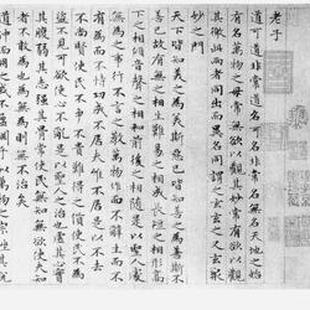 老子
道可道非常道名可名非常名無名天地之始
有名萬物之母常無欲以觀其妙常有欲以觀
其徼此兩者同出而異名同謂之玄玄之又玄衆
妙之門
天下皆知美之為美斯惡已皆知善之為善斯不
善已故有無之相生難易之相成長短之相形高
下之相傾音聲之相和前後之相隨是以聖人處
無為之事行不言之教萬物作而不辭生而不
有為而不恃功成不居夫惟不居是以不去
不尚賢使民不爭不貴難得之貨使民不為
盜不見可欲使心不亂是以聖人之治也虛其心實
其腹弱其志強其骨常使民無知無欲使夫知
者不敢為也為無為則無不治矣
道冲而用之或不盈淵乎似萬物之宗挫其銳